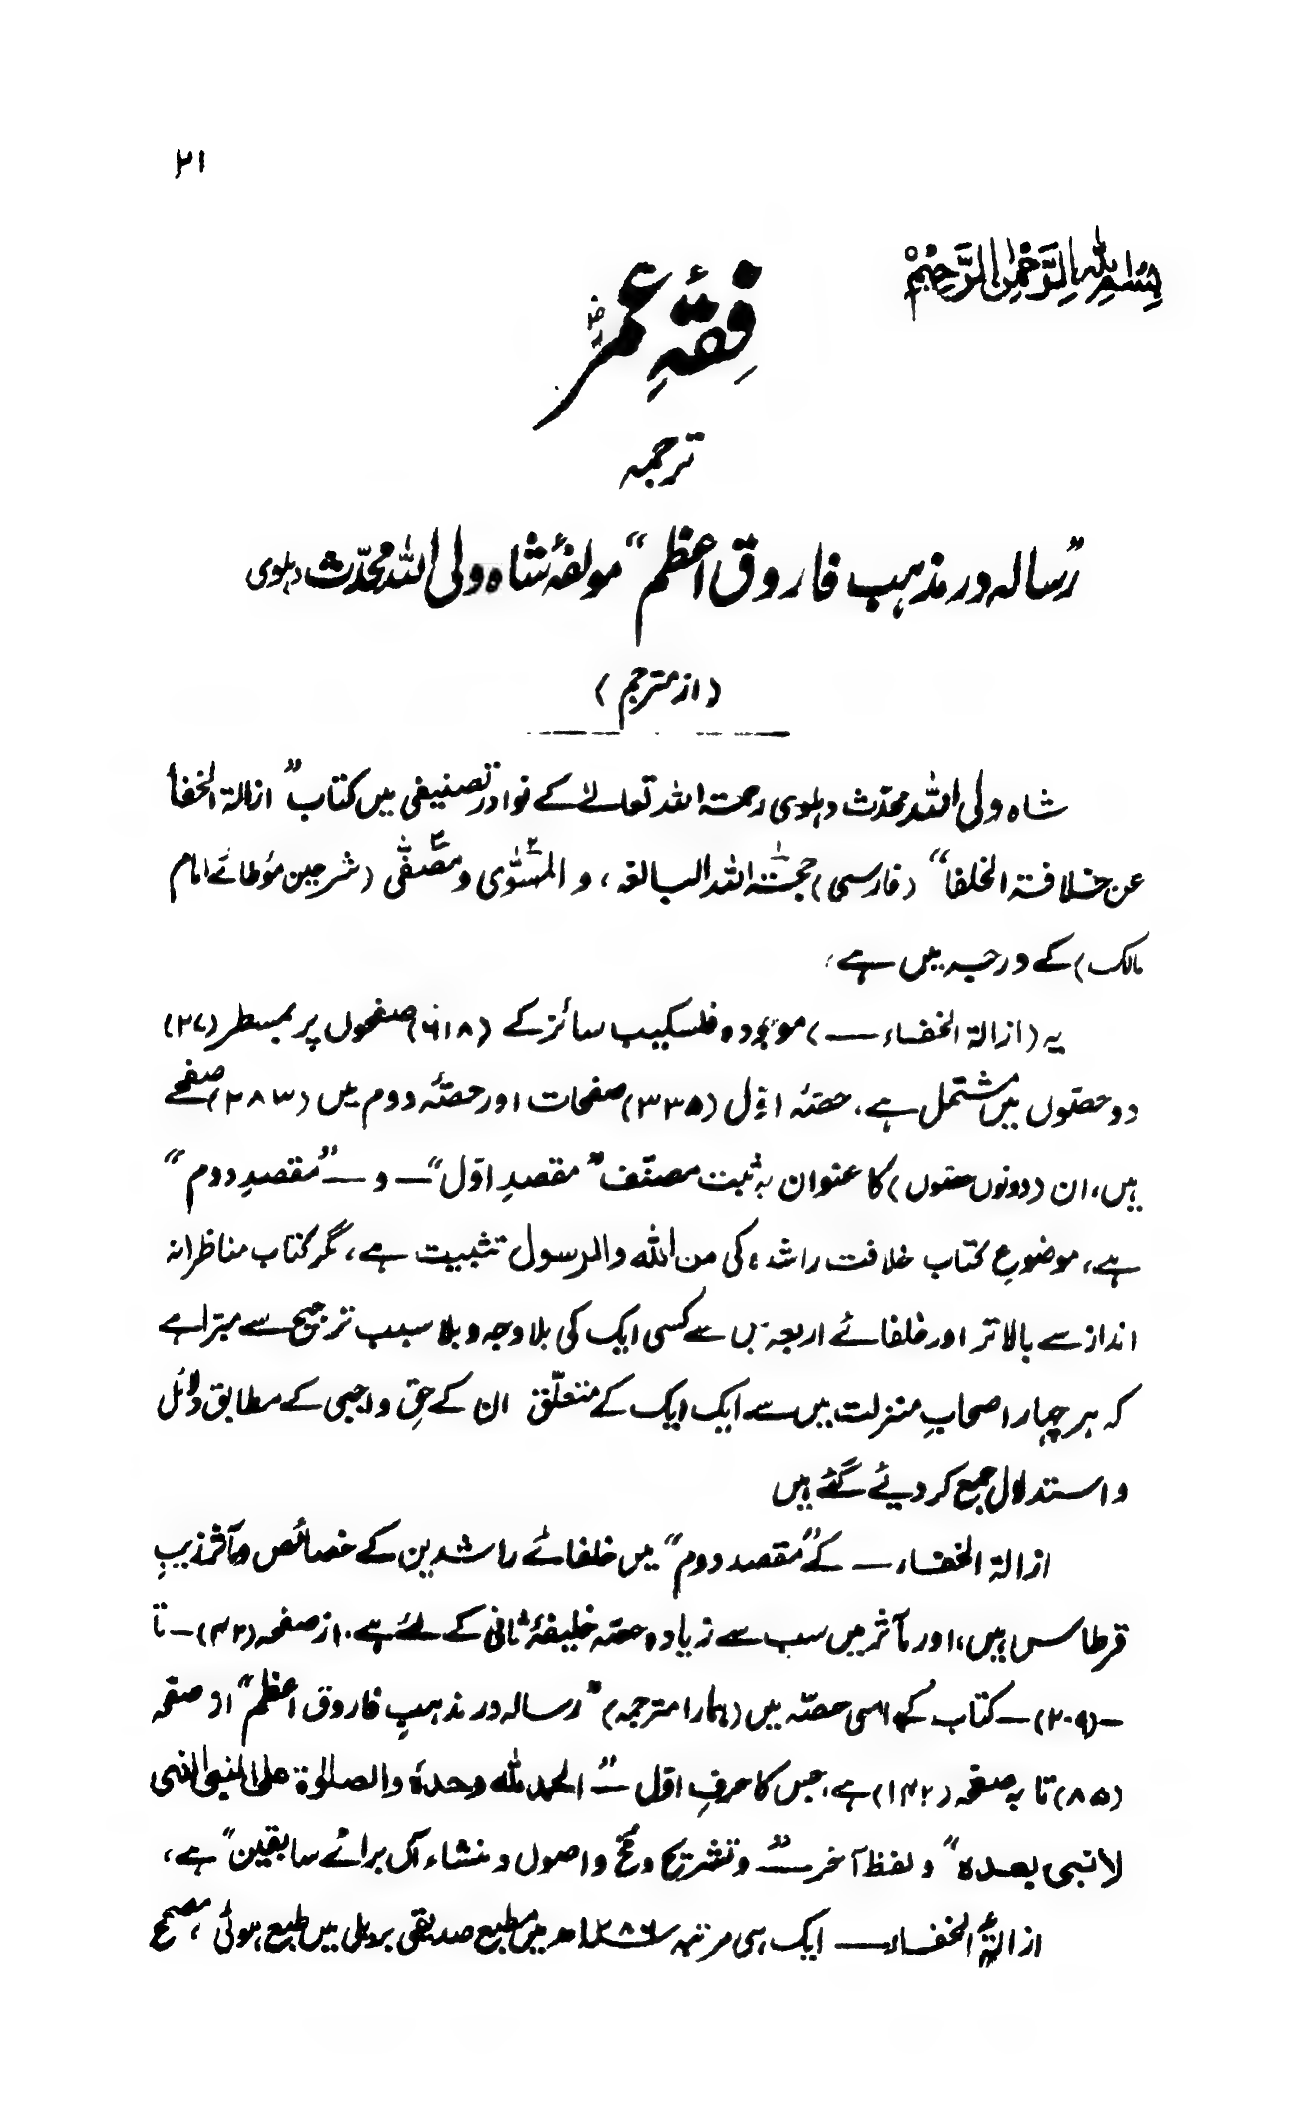 ۲۱
بسم اللہ الرحمن الرحیم
فِقہِ عمرؓ
ترجمہ
"رسالہ در مذہب فاروق اعظم" مولفۂ شاہ ولی اللہ محدّث دہلوی
(از مترجم)
شاہ ولی اللہ محدّث دہلوی رحمتہ اللہ تعالےٰ کے نوادر تصنیفی میں کتاب "ازالۃ الخفأ
عن خلافۃ الخلفا" (فارسی) حجتہ اللہ البالغہ، و المسّوٰی و مصفّٰی (شرحین مؤطائے امام
مالک) کے درجہ میں ہے،
یہ (ازالۃ الخفاء ــــ) موجودہ فلسکیپ سائز کے (۶۱۸) صفحوں پر بمسطر (۲۷)
دو حصّوں میں مشتمل ہے، حصّہ اوّل (۳۳۵) صفحات اور حصّہ دوم میں (۲۸۳) صفحے
ہیں، ان (دونوں حصّوں) کا عنوان بہ ثبت مصنّف "مقصدِ اوّل" ــ و ــ "مقصدِ دوم"
ہے، موضوعِ کتاب خلافت راشدہ کی من اللہ والرسول تثبیت ہے، مگر کتاب مناظرانہ
انداز سے بالاتر اور خلفائے اربعہ میں سے کسی ایک کی بلاوجہ و بلا سبب ترجیح سے مبرا ہے
کہ ہر چہار اصحابِ منزلت میں سے ایک ایک کے متعلّق ان کے حقِ واجبی کے مطابق دلائل
و استدلال جمع کر دیئے گئے ہیں
ازالۃ الخفاء ــ کے "مقصد دوم" میں خلفائے راشدین کے خصائص و مآثر زیبِ
قرطاس ہیں، اور مآثر میں سب سے زیادہ حصّہ خلیفۂ ثانی کے لئے ہے۔ از صفحہ (۴۲) ــ تا
ــ (۲۰۹) ــ کتاب کے اسی حصّہ میں (ہمارا مترجمہ) "رسالہ در مذہبِ فاروق اعظم" از صفحہ
(۸۵) تا بہ صفحہ (۱۴۲) ہے، جس کا حرفِ اوّل ــ "الحمد للہ وحدہٗ والصلوٰۃ علی النبی الذی
لا نبی بعدہ" و لفظ آخر ــ "و تشریح و اصول و منشاء آں برائے سابقین" ہے،
ازالۃ الخفاء ــــ ایک ہی مرتبہ ۱۲۸۶ھ میں مطبع صدیقی بریلی میں طبع ہوئی، مصحح